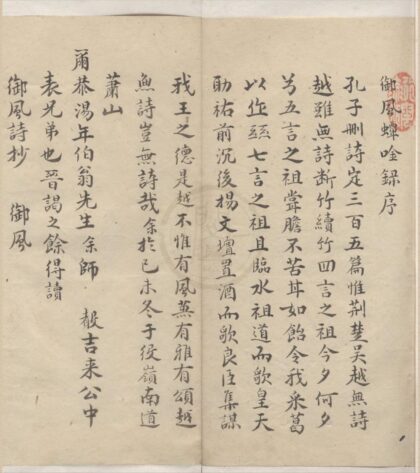 御風蟬唫録序
孔子刪詩定三百五篇惟荆楚吴越無詩
越雖無詩断竹續竹四言之祖今夕何夕
為五言之祖甞膽不苦耳如飴令我采葛
以作絲七言之祖且臨水祖道而歌皇天
助祐前沉後揚文壇置酒而歌良臣集謀
我王之德是越不惟有風蒹有雅有頌越
魚詩豈無詩哉余於己未冬于役嶺南道
蕭山
甭恭湯年伯翁先生余師 毅吉来公中
表兄弟也晋謁之餘得讀
御風詩抄 御風